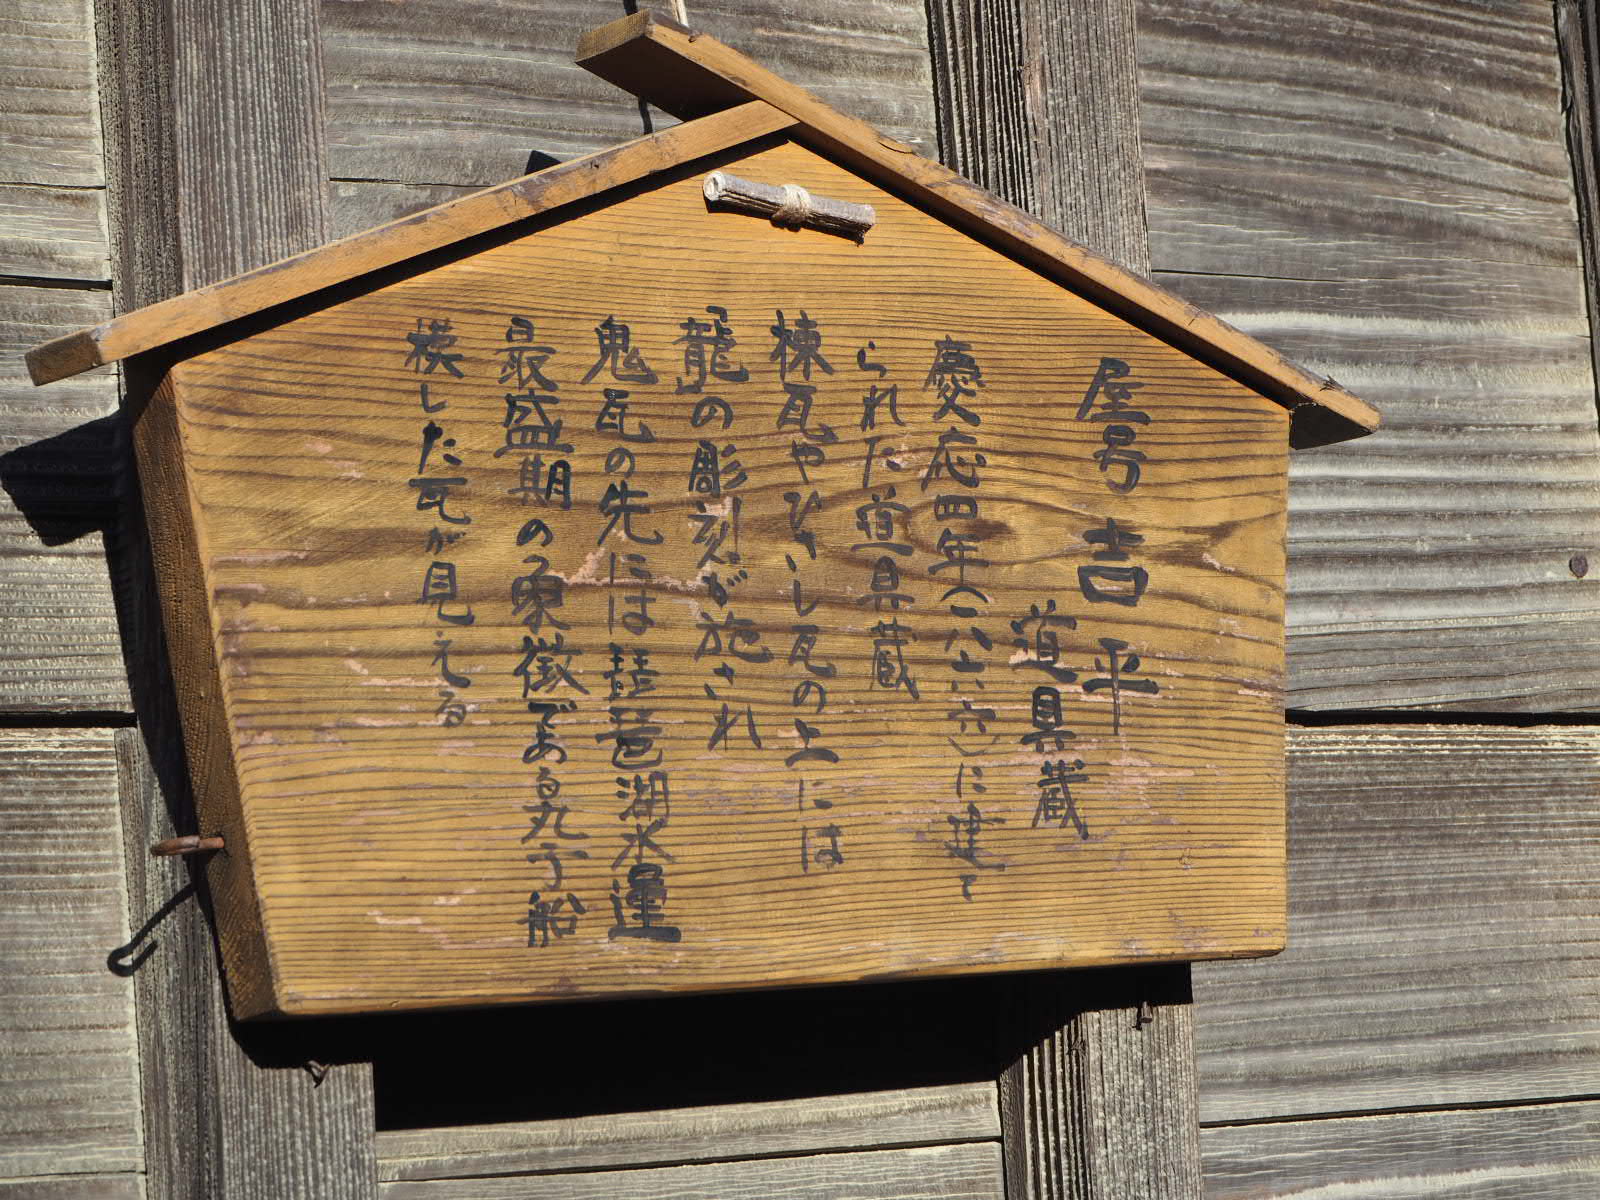 屋号 吉平
道具蔵
慶応四年(一八六六)に建て
られた道具蔵
棟瓦やひさし瓦の上には
「龍」の彫刻が施され
鬼瓦の先には琵琶湖水運
最盛期の象徴である丸子船
模した瓦が見える